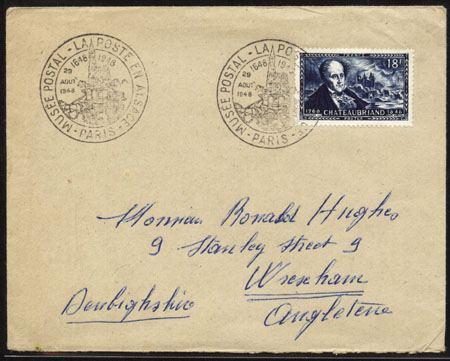 MUSÉE POSTAL - LA POSTE EN ALSACE - PARIS -
1648 1948
29
AOUT
1948
MUSÉE POSTAL - LA POSTE
PARIS
1648
29
AOUT
1948
18F
1768 CHATEAUBRIAND 1848
POSTES
Monsieur Ronald Hughes
9 Stanley street 9
Wrexham
Denbighshire
Angleterre